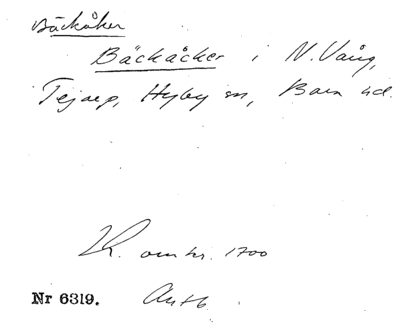 Bäckåker
Bäckåcker i N. Vång,
Tejarp, Hyby sn, Bara hd.
K. omkr. 1700
Nr 6319.